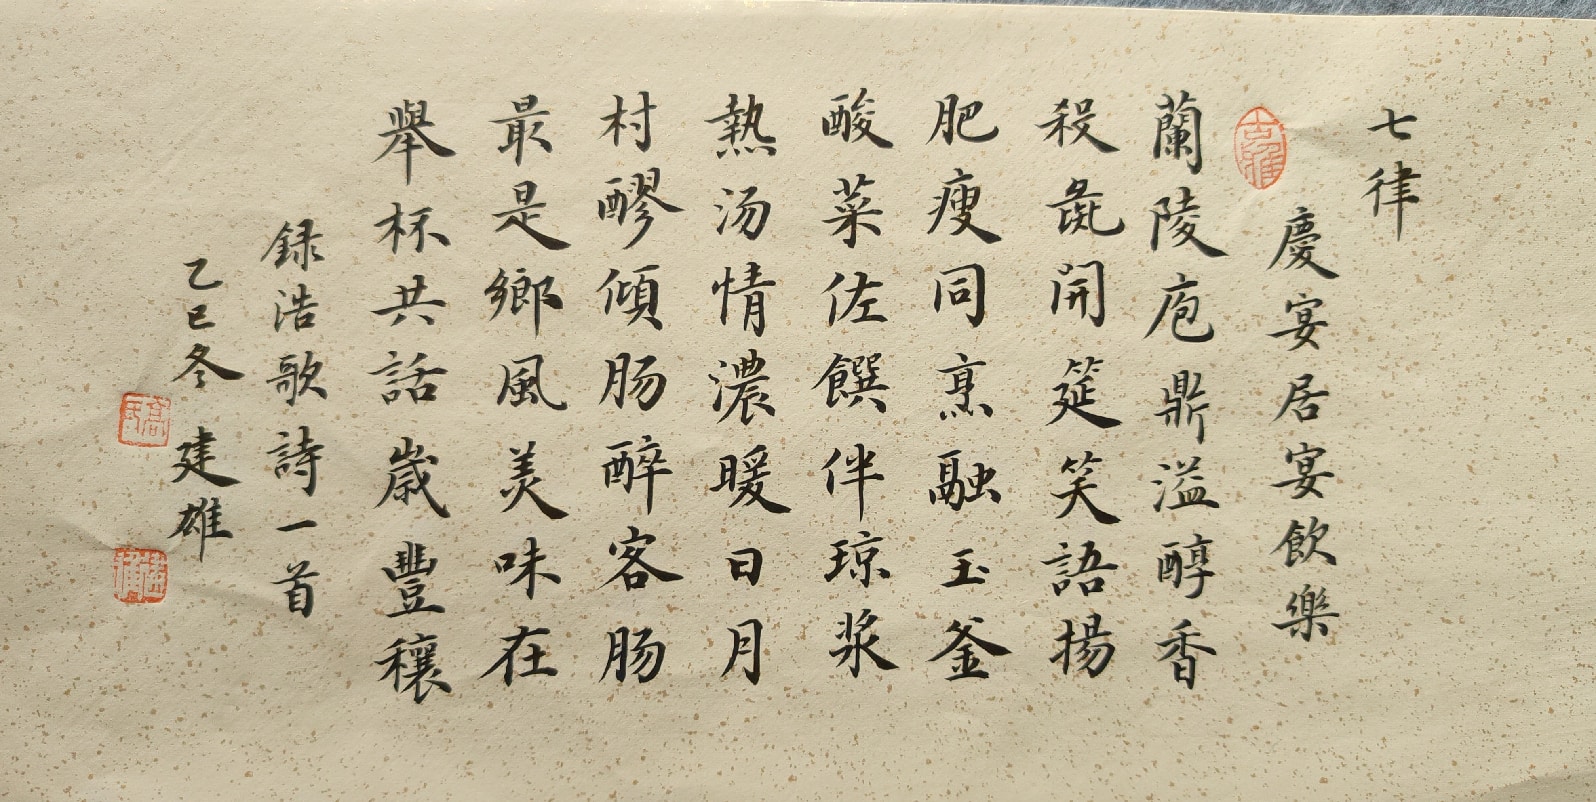 七律
慶宴居宴飲樂
蘭陵庖鼎溢醇香
殺彘開筵笑語揚
肥瘦同烹融玉釜
酸菜佐饌伴琼浆
熱汤情濃暖日月
村醪傾肠醉客肠
最是鄉風美味在
舉杯共話歲豐穰
録浩歌詩一首
乙巳冬 建雄